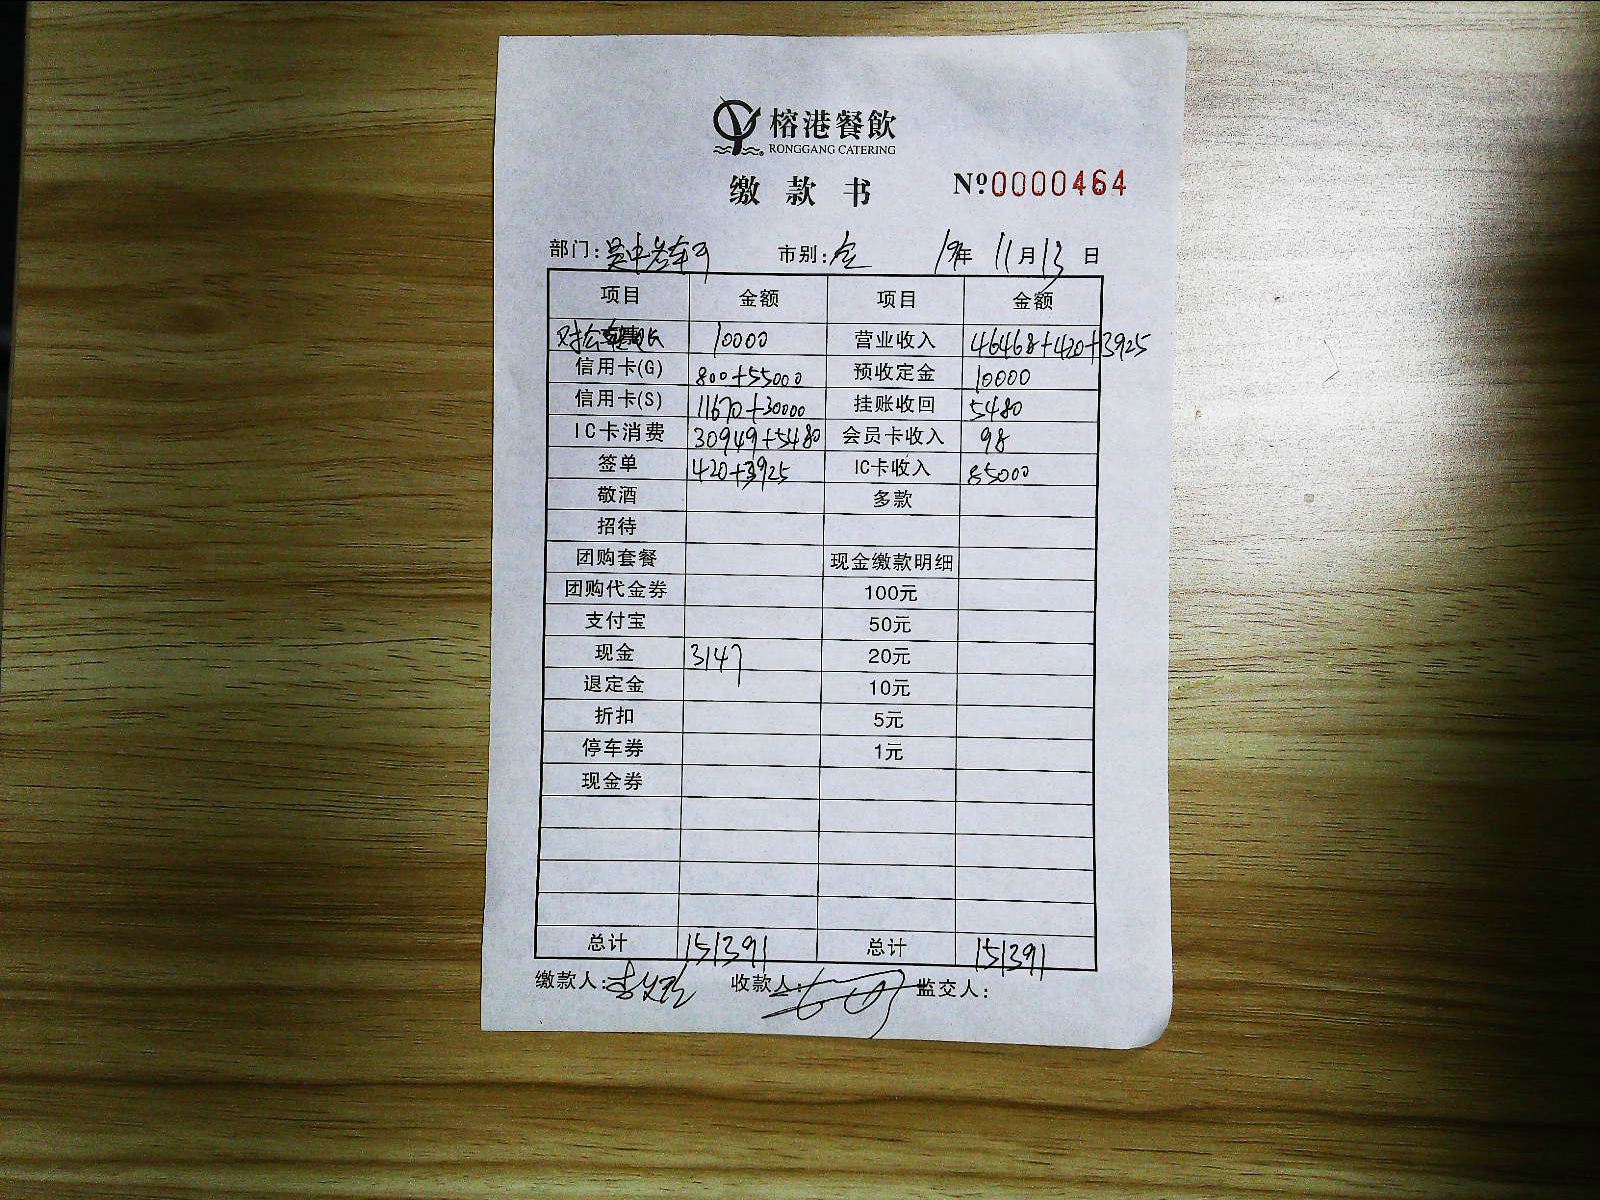 榕港餐飲
RONGGANG CATERING
缴款书 Nº0000464
部门: 市别:全 19年 11月13日
项目 金额 项目 金额
对公 10000 营业收入 46468+420+3925
信用卡(G) 800+55000 预收定金 10000
信用卡(S) 11670+30000 挂账收回 5480
IC卡消费 30949+5480 会员卡收入 98
签单 420+3925 IC卡收入 85000
敬酒 多款
招待
团购套餐 现金缴款明细
团购代金券 100元
支付宝 50元
现金 3147 20元
退定金 10元
折扣 5元
停车券 1元
现金券
总计 151391 总计 151391
缴款人: 收款人: 监交人: